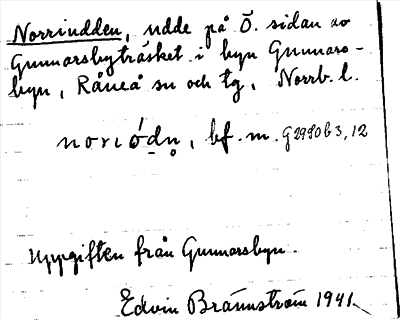 Norriudden, udde på Ö. sidan av
Gunnarsbyträsket i byn Gunnars-
byn, Råneå sn och tg, Norrb. l.
bf. m. G2990 b 3, 12
Uppgiften från Gunnarsbyn.
Edvin Brännström 1941.